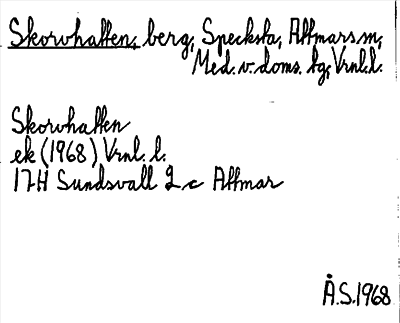 Skorvhatten, berg, Specksta, Attmars sn,
Med. v. doms. tg, Vrnl. l.
Skorvhatten
ek (1968) Vrnl. l.
17H Sundsvall 2 c Attmar
Å.S. 1968